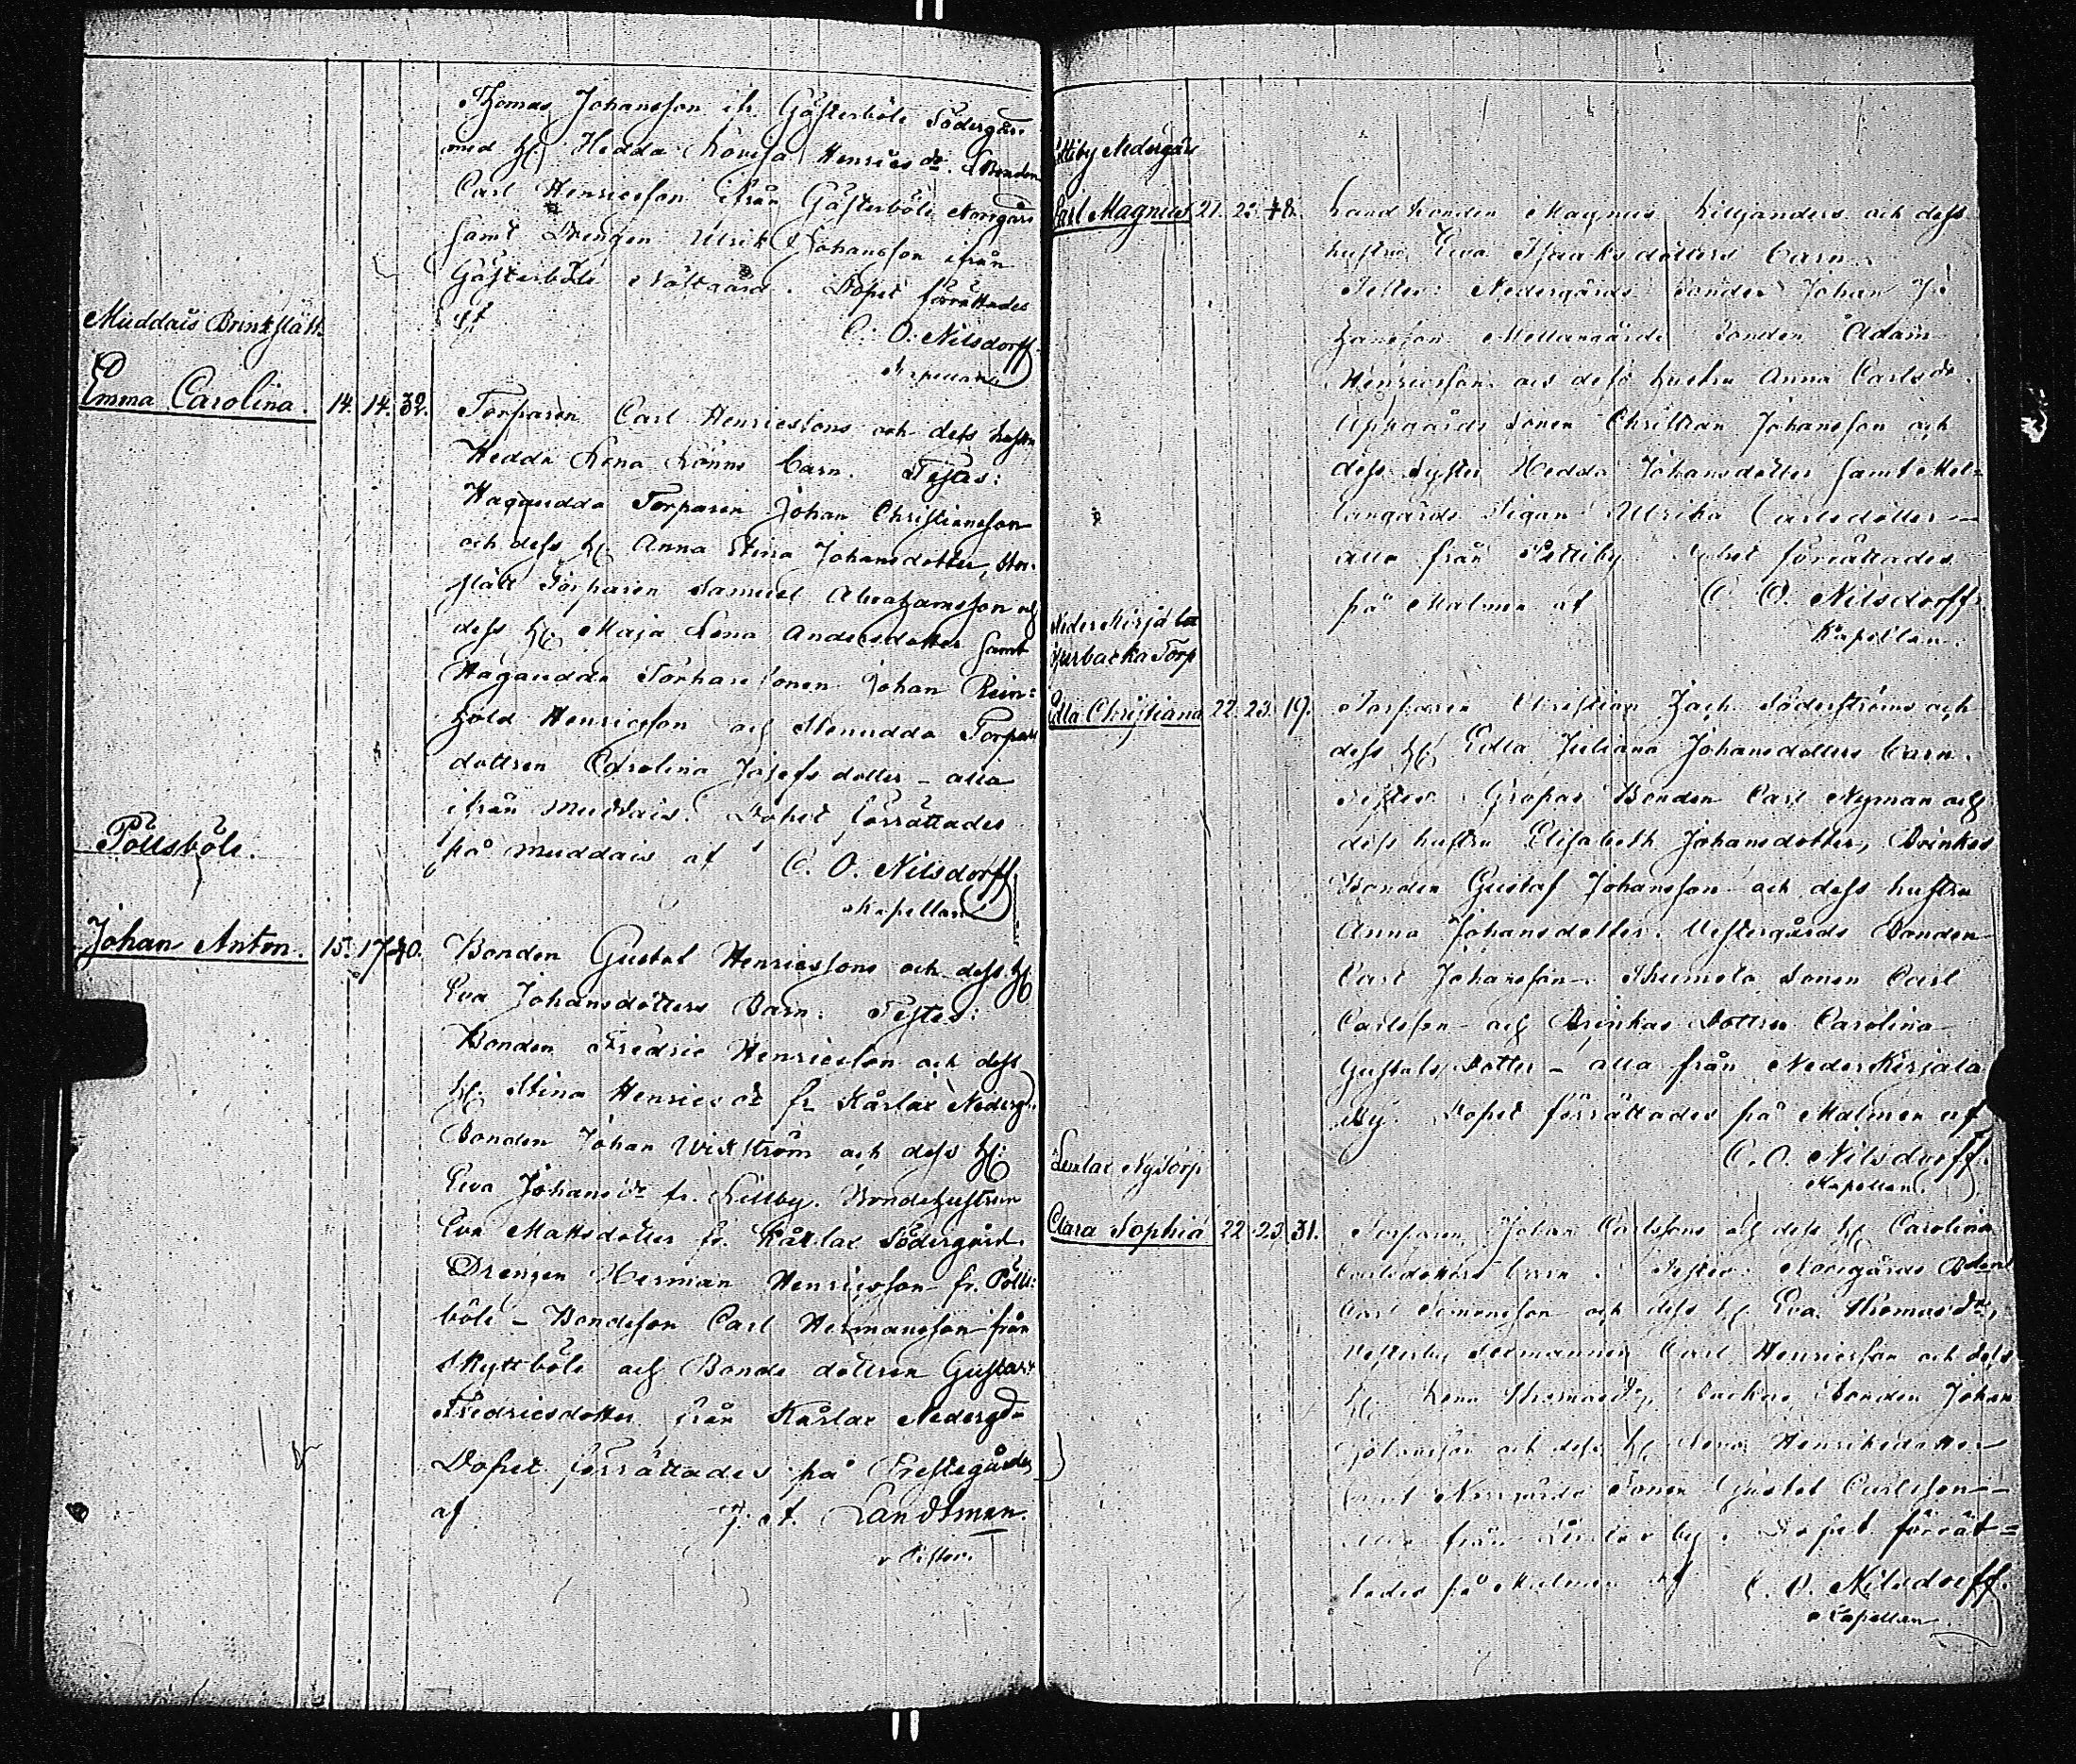 Thomas Johansson ifr. Gästerböle Södergård
med H. Hedda Lovisa Henricsdr. Bonden
Carl Henricsson ifrån Gästerböle Norrgård
samt Drengen Ulrik Johansson ifrån
Gästerböle. Dopet förrättades
af
C. O. Nilsdorff.
Kapellan
Muddais Brinkslätt
Emma Carolina. 14. 14. 32.
Torparen Carl Henricssons och dess hustru
Hedda Lena Lönns barn. Testes:
Hagaudda Torparen Johan Christiansson
och dess H. Anna Stina Johansdotter,
slätt Torparen Samuel Abrahamsson och
dess H. Maja Lena Andersdotter samt
Hagaudda Torparesonen Johan Rein=
hold Henricsson och Stenudda Torpare
dottren Carolina Josefsdotter – alla
ifrån Muddais. Dopet förrättades
på Muddais af C. O. Nilsdorff
Kapellan
Pöllsböle.
Johan Anton. 15. 17. 40.
Bonden Gustaf Henricssons och dess H.
Eva Johansdotters Barn. Testes:
Bonden Fredric Henricsson och dess
H. Stina Henricsdr fr. Kårlax Nederg.
Bonden Johan Wikström och dess H.
Eva Johansdr fr. Lillby. Bondehustrun
Eva Mattsdotter fr. Kårlax Södergård.
Drengen Herman Henricsson fr. Pölls=
böle – Bondeson Carl Hermansson från
Skyttböle och Bonde dottren Gustava
Fredricsdotter från Kårlax Nedergd.
Dopet förrättades på Prestegården
af J. A. Landtman.
v. Pastor.
Nedergård
Carl Magnus 21. 23. 48.
Landbonden Magnus Liljanders och dess
hustru Eva Isaaksdotters barn.
Testes: Nedergårds bonden Johan Jo
hansson Mellangårds bonden Adam
Henricsson och dess hustru Anna Carlsdr.
Uppgårds sonen Christian Johansson och
dess syster Hedda Johansdotter samt Mel=
langårds Pigan Ulrika Carlsdotter –
alla från Pettiby. Dopet förrättades
på Malmen af C. O. Nilsdorff.
Kapellan.
Nederkirjala
Torp
Edla Christiana 22. 23. 19.
Torparen Christian Zach. Söderströms och
dess H. Edla Juliana Johansdotters barn.
Testes: Gropas Bonden Carl Nyman och
dess hustru Elisabeth Johansdotter, Brinkas
Bonden Gustaf Johansson och dess hustru
Anna Johansdotter. Vestergårds Bonden
Carl Johansson. Sonen Carl
Carlsson och Brinkas Dottren Carolina
Gustafs Dotter – alla från Nederkirjala
By. Dopet förrättades på Malmen af
C. O. Nilsdorff.
Kapellan.
Lenlax Nytorp
Clara Sophia 22. 23. 31.
Torparen Johan Carlssons och dess H. Carolina
Carlsdotters barn. Testes: Norrgårds Bonden
Carl Simonsson och dess H. Eva Thomasdr,
Vesterby Carl Henricsson och dess
H. Lena Thomasdr, Backas bonden Johan
Johansson och dess H. Lena Henriksdotter
samt Norrgårds Sonen Gustaf Carlsson –
alla från Lenlax by. Dopet förrät=
tades på Malmen af C. O. Nilsdorff.
Kapellan